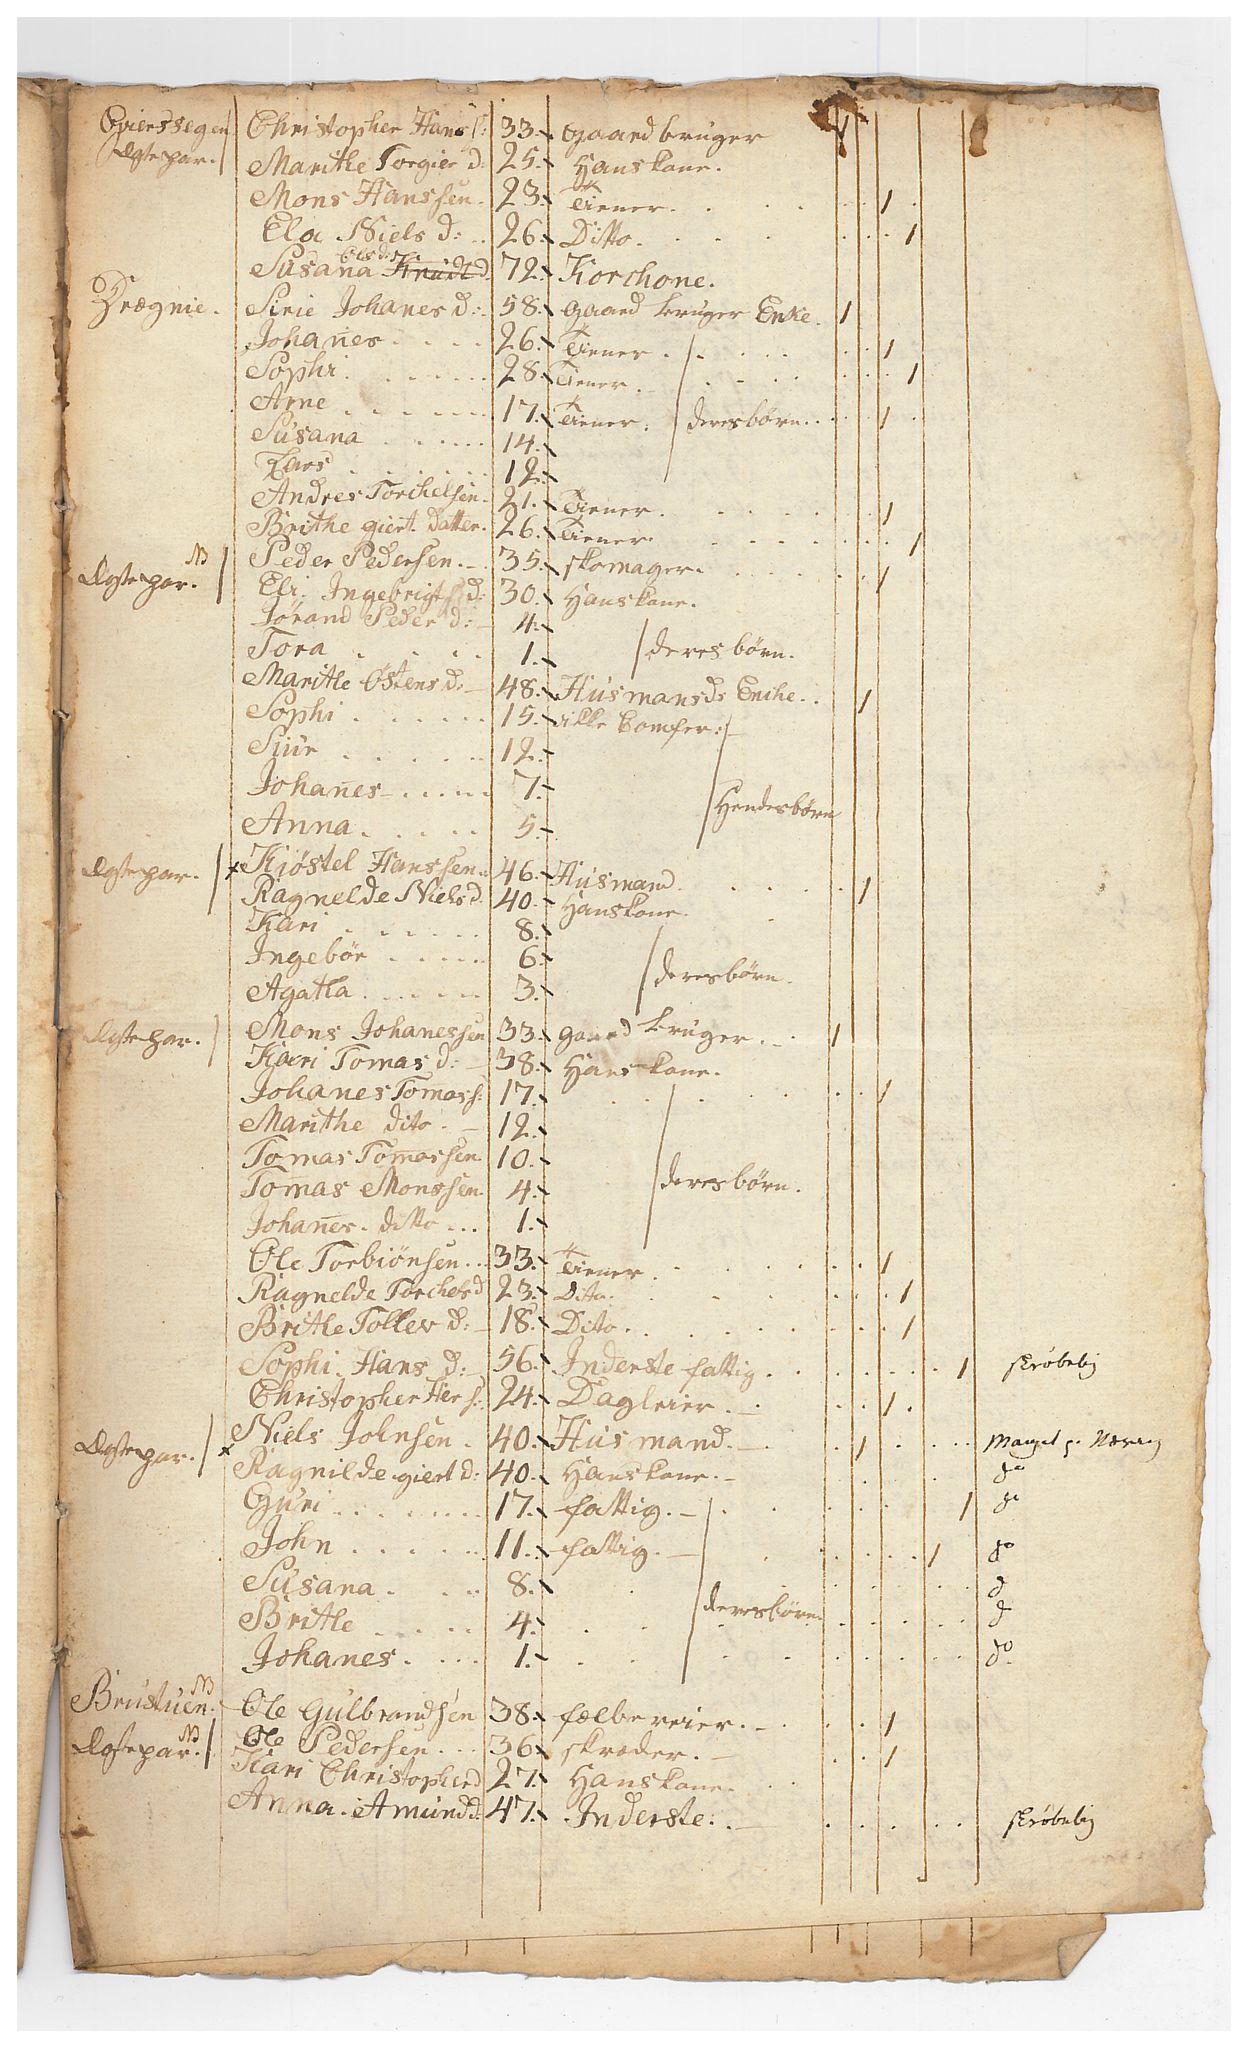 Christopher Hans s: 33. gaard bruger
Ægte par. Marithe Torgier d: 25. Hans kone.
Mons Hanssen. 23. Tiener. 1
Ela Niels d: 26. Ditto. 1
Ols d:
Susana Knudt d. 72. Korchone.
Sirie Johanes d: 58. gaard bruger Enke. 1
Johanes 26. Tiener. 1
Sophi. 28. Tiener. 1
Arne 17. Tiener. deres børn. 1
Susana 14.
Lars 12.
Andres Torchelsen. 21. Tiener. 1
Brithe giert. datter. 26. Tiener. 1
NB
Peder Pedersen. 35. skomager. 1
Ægte par. Eli. Ingebrigt s d: 30. Hans kone.
Jørand Peder d: 4.
Tora 1. deres børn.
Marithe Østens d: 48. Husmands Enche. 1
Sophi 15. ikke Comfer:
Siur 12.
Johanes 7. Hendes børn
Anna 5.
Ægte par. x Kiøstel Hanssen. 46. Husmand. 1
Ragnelde Niels d. 40. Hans kone.
Kari 8.
Ingebør 6.
Agatha 3. deres børn.
Ægte par. Mons Johanessen 33. gaard bruger. 1
Kari Tomas d: 38. Hans kone.
Johanes Tomas s: 17. 1
Marithe dito. 12.
Tomas Tomassen 10.
Tomas Monssen. 4. deres børn.
Johanes. ditto 1.
Ole Torbiønsen 33. Tiener. 1
Ragnelde Torchels d 23. Dito. 1
Brithe Tollev d: 18. Dito. 1
Sophi. Hans d: 56. Inderste fattig. 1 skrøbelig
Christopher Her s: 24. Dagleier. 1
Ægte par. x Niels Johnsen. 40. Husmand. 1
Ragnilde giert d: 40. Hans kone. do
Guri 17. fattig. 1 do
John 11. fattig. 1 do
Susana 8. d
Brithe 4. deres børn. d
Johanes. 1. do
NB
Brustuen. Ole Gulbrandsen 38. fælbereier. 1
NB
Ægte par. Ole Pedersen 36. skræder. 1
Kari Christopher d 27. Hans kone.
Anna. Amund d: 47. Inderste. skrøbelig